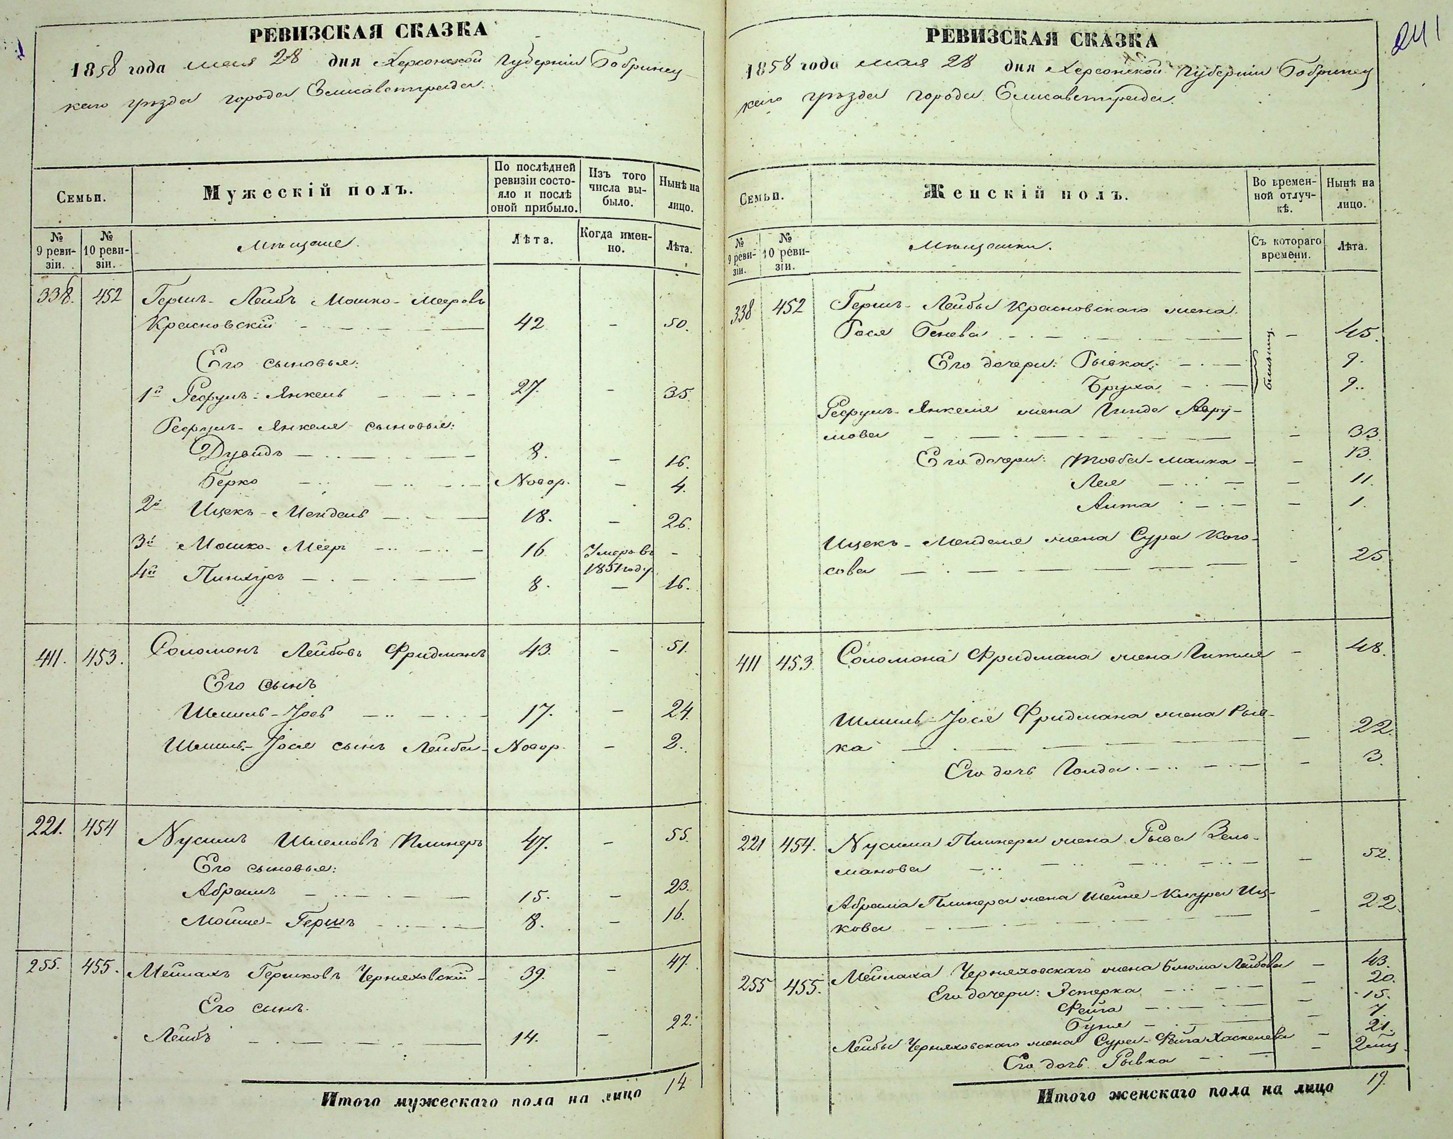 241
РЕВИЗСКАЯ СКАЗКА
1858 года мая 28 дня Херсонской Губерніи Бобринец-
каго уѣзда города Елисаветграда.
Семьи.
Мужескій полъ.
По послѣдней ревизіи состояло и послѣ оной прибыло.
Изъ того числа выбыло.
Нынѣ на лицо.
№ 9 ревизіи.
№ 10 ревизіи.
Мѣщане.
Лѣта.
Когда именно.
Лѣта.
338. 452 Гершъ-Лейбъ Мошко-Мееровъ
Красновскій 42 - 50.
Его сыновья:
1й Рефулъ-Янкель 27. - 35.
Рефулъ-Янкеля сыновья:
Дувидъ 8. - 16.
Берко Новор. - 4.
2й Ицекъ-Мендель 18. - 26.
3й Мошко-Мееръ 16 Умеръ въ 1851 году -
4й Пинхусъ 8. - 16.
411. 453. Соломонъ Лейбовъ Фридманъ 43. - 51.
Его сынъ
Шмиль-Іось 17. - 24.
Шмиль-Іося сынъ Лейба Новор. - 2.
221. 454 Нусимъ Шлемовъ Плинеръ 47. - 55.
Его сыновья:
Абрамъ 15. - 23.
Мойше-Гершъ 8. - 16.
255. 455. Мейлахъ Гершковъ Черняховскій 39. - 47.
Его сынъ.
Лейбъ 14. - 22.
Итого мужескаго пола на лицо 14
РЕВИЗСКАЯ СКАЗКА
1858 года мая 28 дня Херсонской Губерніи Бобринец
каго уѣзда города Елисаветграда.
Семьи.
Женскій полъ.
Во временной отлучкѣ.
Нынѣ на лицо.
№ 9 ревизіи.
№ 10 ревизіи.
Мѣщанки.
Съ котораго времени.
Лѣта.
338 452 Гершъ-Лейбы Красновскаго жена
Бенева - 45.
Его дочери: Рывка: 9.
Бруха 9. близнец.
Рефулъ-Янкеля жена Гинда Авру-
мова - 33.
Его дочери: Товба-Малка - 13.
Лея - 11.
Алта - 1.
Ицекъ-Менделя жена Сура Кого-
сова - 25
411 453 Соломона Фридмана жена Гитля - 48.
Шмиль-Іося Фридмана жена Рыв-
ка - 22.
Его дочь Голда - 3.
221 454. Нусима Плинера жена Рыва Зель-
манова - 52.
Абрама Плинера жена Шейне- Иц-
кова - 22.
255 455. Мейлаха Черняховскаго жена Блюма Лейбова - 43.
Его дочери: Эстерка - 20.
Фейга - 15.
Буня - 7
Лейбы Черняховскаго жена Сура-Фейга Хаскелева - 21.
Его дочь Рывка - 2 мѣц.
Итого женскаго пола на лицо 19.